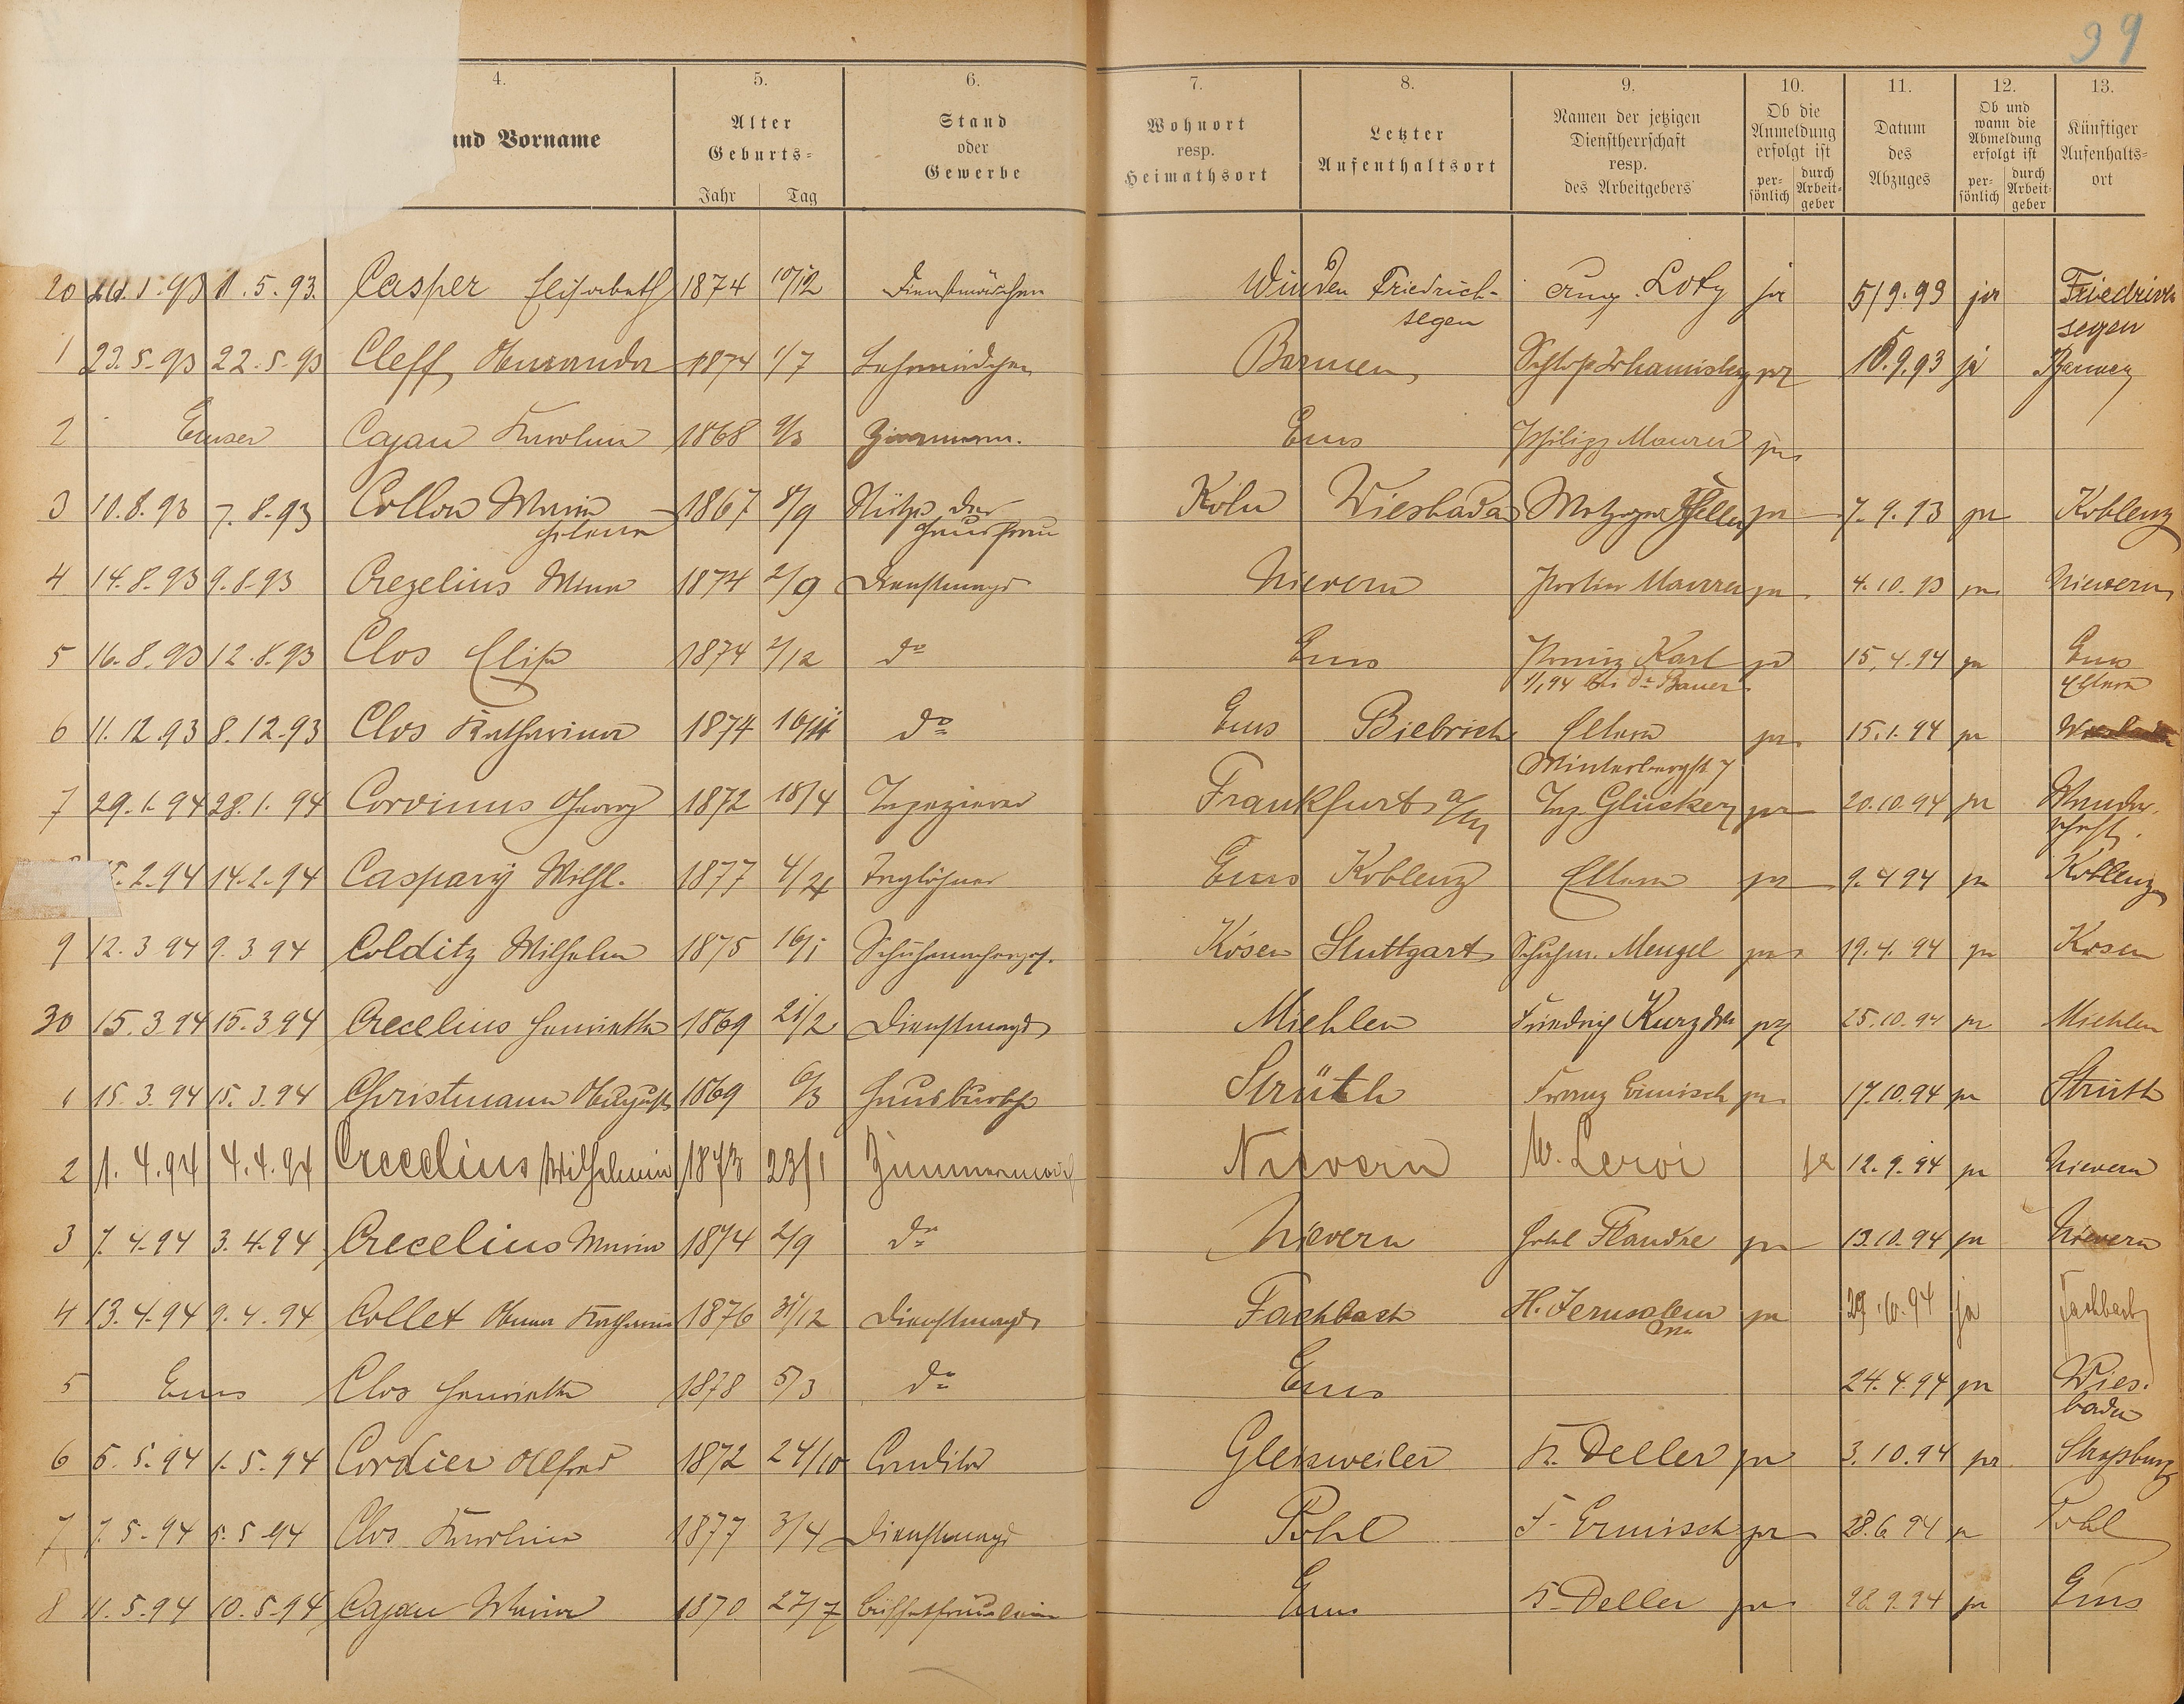 39
4. 5. 6. 7. 8. 9. 10. 11. 12. 13.
und Vorname
Alter
Geburts=
Jahr Tag
Stand
oder
Gewerbe
Wohnort
resp.
Heimathsort
Letzter
Aufenthaltsort
Namen der jetzigen
Dienstherrschaft
resp.
des Arbeitgebers
Ob die
Anmeldung
erfolgt ist
per=
sönlich
durch
Arbeit=
geber
Datum
des
Abzuges
Ob und
wann die
Abmeldung
erfolgt ist
per=
sönlich
durch
Arbeit=
geber
Künftiger
Aufenthalts=
ort
20 1.5.93. Casper Elisabeth 1874 10/12 Dienstmädchen Winden Friedrich- Aug. Loty ja 5/9.93 ja Friedrichs
segen segen
1 23.5.93 22.5.93 Cleff Amanda 1874 1/7 Lehrmädchen Barmen Schloß Johannisberg ja 10.9.93 ja Barmen
2 Emser Cajau Karolina 1868 9/3 Zimmerm. Ems Philipp Maurer ja
3 10.8.93 7.8.93 Collon Maria 1867 8/9 Stütze der Köln Wiesbaden Metzger ja 7.9.93 ja Koblenz
Helena Hausfrau
4 14.8.93 9.8.93 Crezelius Minna 1874 2/9 Dienstmagd Nievern Maurer ja 4.10.93 ja Nievern
5 16.8.93 12.8.93 Clos Elise 1874 2/12 do Ems Prinz Karl ja 15.4.94 ja Ems
1/1 94 bei Dr Bauer Eltern
6 11.12.93 8.12.93 Clos Katharina 1874 16/11 do Ems Biebrich Eltern ja 15.1.94 ja Wiesbaden
Winterbergstr. 7
7 29.1.94 28.1.94 Corvinus Georg 1872 18/4 Tapezierer Frankfurt a/M Tap. Glücker ja 20.10.94 ja Wander-
schaft.
5.2.94 14.2.94 Caspary Wilh. 1877 4/4 Taglöhner Ems Koblenz Eltern ja 9.4 94 ja Koblenz
9 12.3 94 9.3 94 Colditz Wilhelm 1875 16/1 Schuhmacherges. Kösen Stuttgart Schuhm. Mengel ja 19.4.94 ja Kösen
30 15.3 94 15.3 94 Crecelius Henriette 1869 21/2 Dienstmagd Miehlen Friedrich Kurz ja 25.10.94 ja Miehlen
1 15.3.94 15.3.94 Christmann August 1869 6/3 Hausbursche Strüth Franz Ermisch ja 17.10.94 ja Strüth
2 1.4.94 4.4.94 Crecelius Wilhelmin 1873 23/1 Zimmermäd Nievern W. Leroi ja 12.9.94 ja Nievern
3 7.4.94 3.4.94 Crecelius Maria 1874 2/9 do Nievern Hotel Flandre ja 13.10.94 ja Nievern
4 13.4.94 9.4.94 Collet Anna Katharina 1876 31/12 Dienstmagd Fachbach H. Jerusalem ja 29.10.94 ja Fachbach
5 Ems Clos Henriette 1878 5/3 do Ems 24.4.94 ja Wies-
baden
6 5.5.94 1.5.94 Cordier Alfred 1872 24/10 Conditor Gleisweiler Fr. Deller ja 3.10.94 ja Straßburg
7 7.5.94 5.5.94 Clos Karolina 1877 3/4 Dienstmagd Pohl F. Ermisch ja 28.6.94 ja Pohl
8 11.5.94 10.5.94 Cajau Maria 1870 27/7 Büffetfräulein Ems F. Deller ja 28.9.94 ja Ems